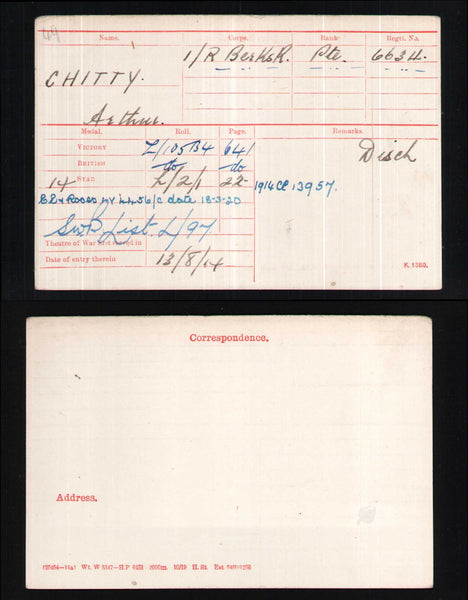 49
Name. Corps. Rank. Regtl. No.
1/R Berks R. Pte. 6634.
CHITTY.
Arthur.
Medal. Roll. Page. Remarks.
VICTORY L/105B4 641 Disch
BRITISH do do
14 STAR L/2/1 22 1914 CL 13957.
Cl & Roses date 18-3-20
SWB List L/97
Theatre of War first served in
Date of entry therein 13/8/14
K. 1380.
Correspondence.
Address.